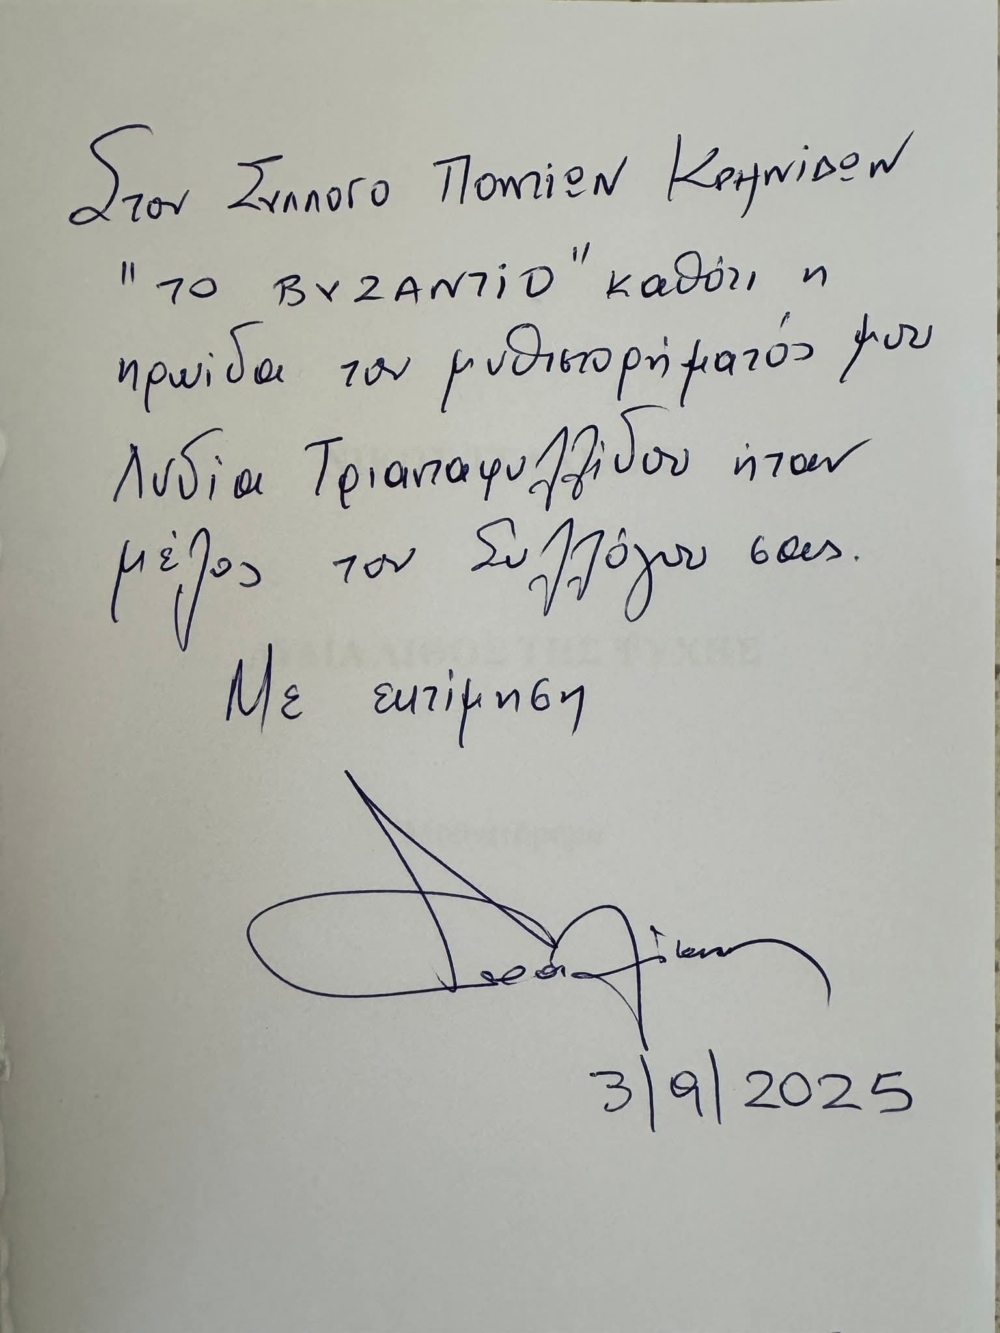 Στον Σύλλογο Ποντίων Κρηνίδων
"ΤΟ ΒΥΖΑΝΤΙΟ" καθότι η
ηρωίδα του μυθιστορήματός μου
Λυδία Τριανταφυλλίδου ήταν
μέλος του Συλλόγου σας.
Με εκτίμηση
3/9/2025